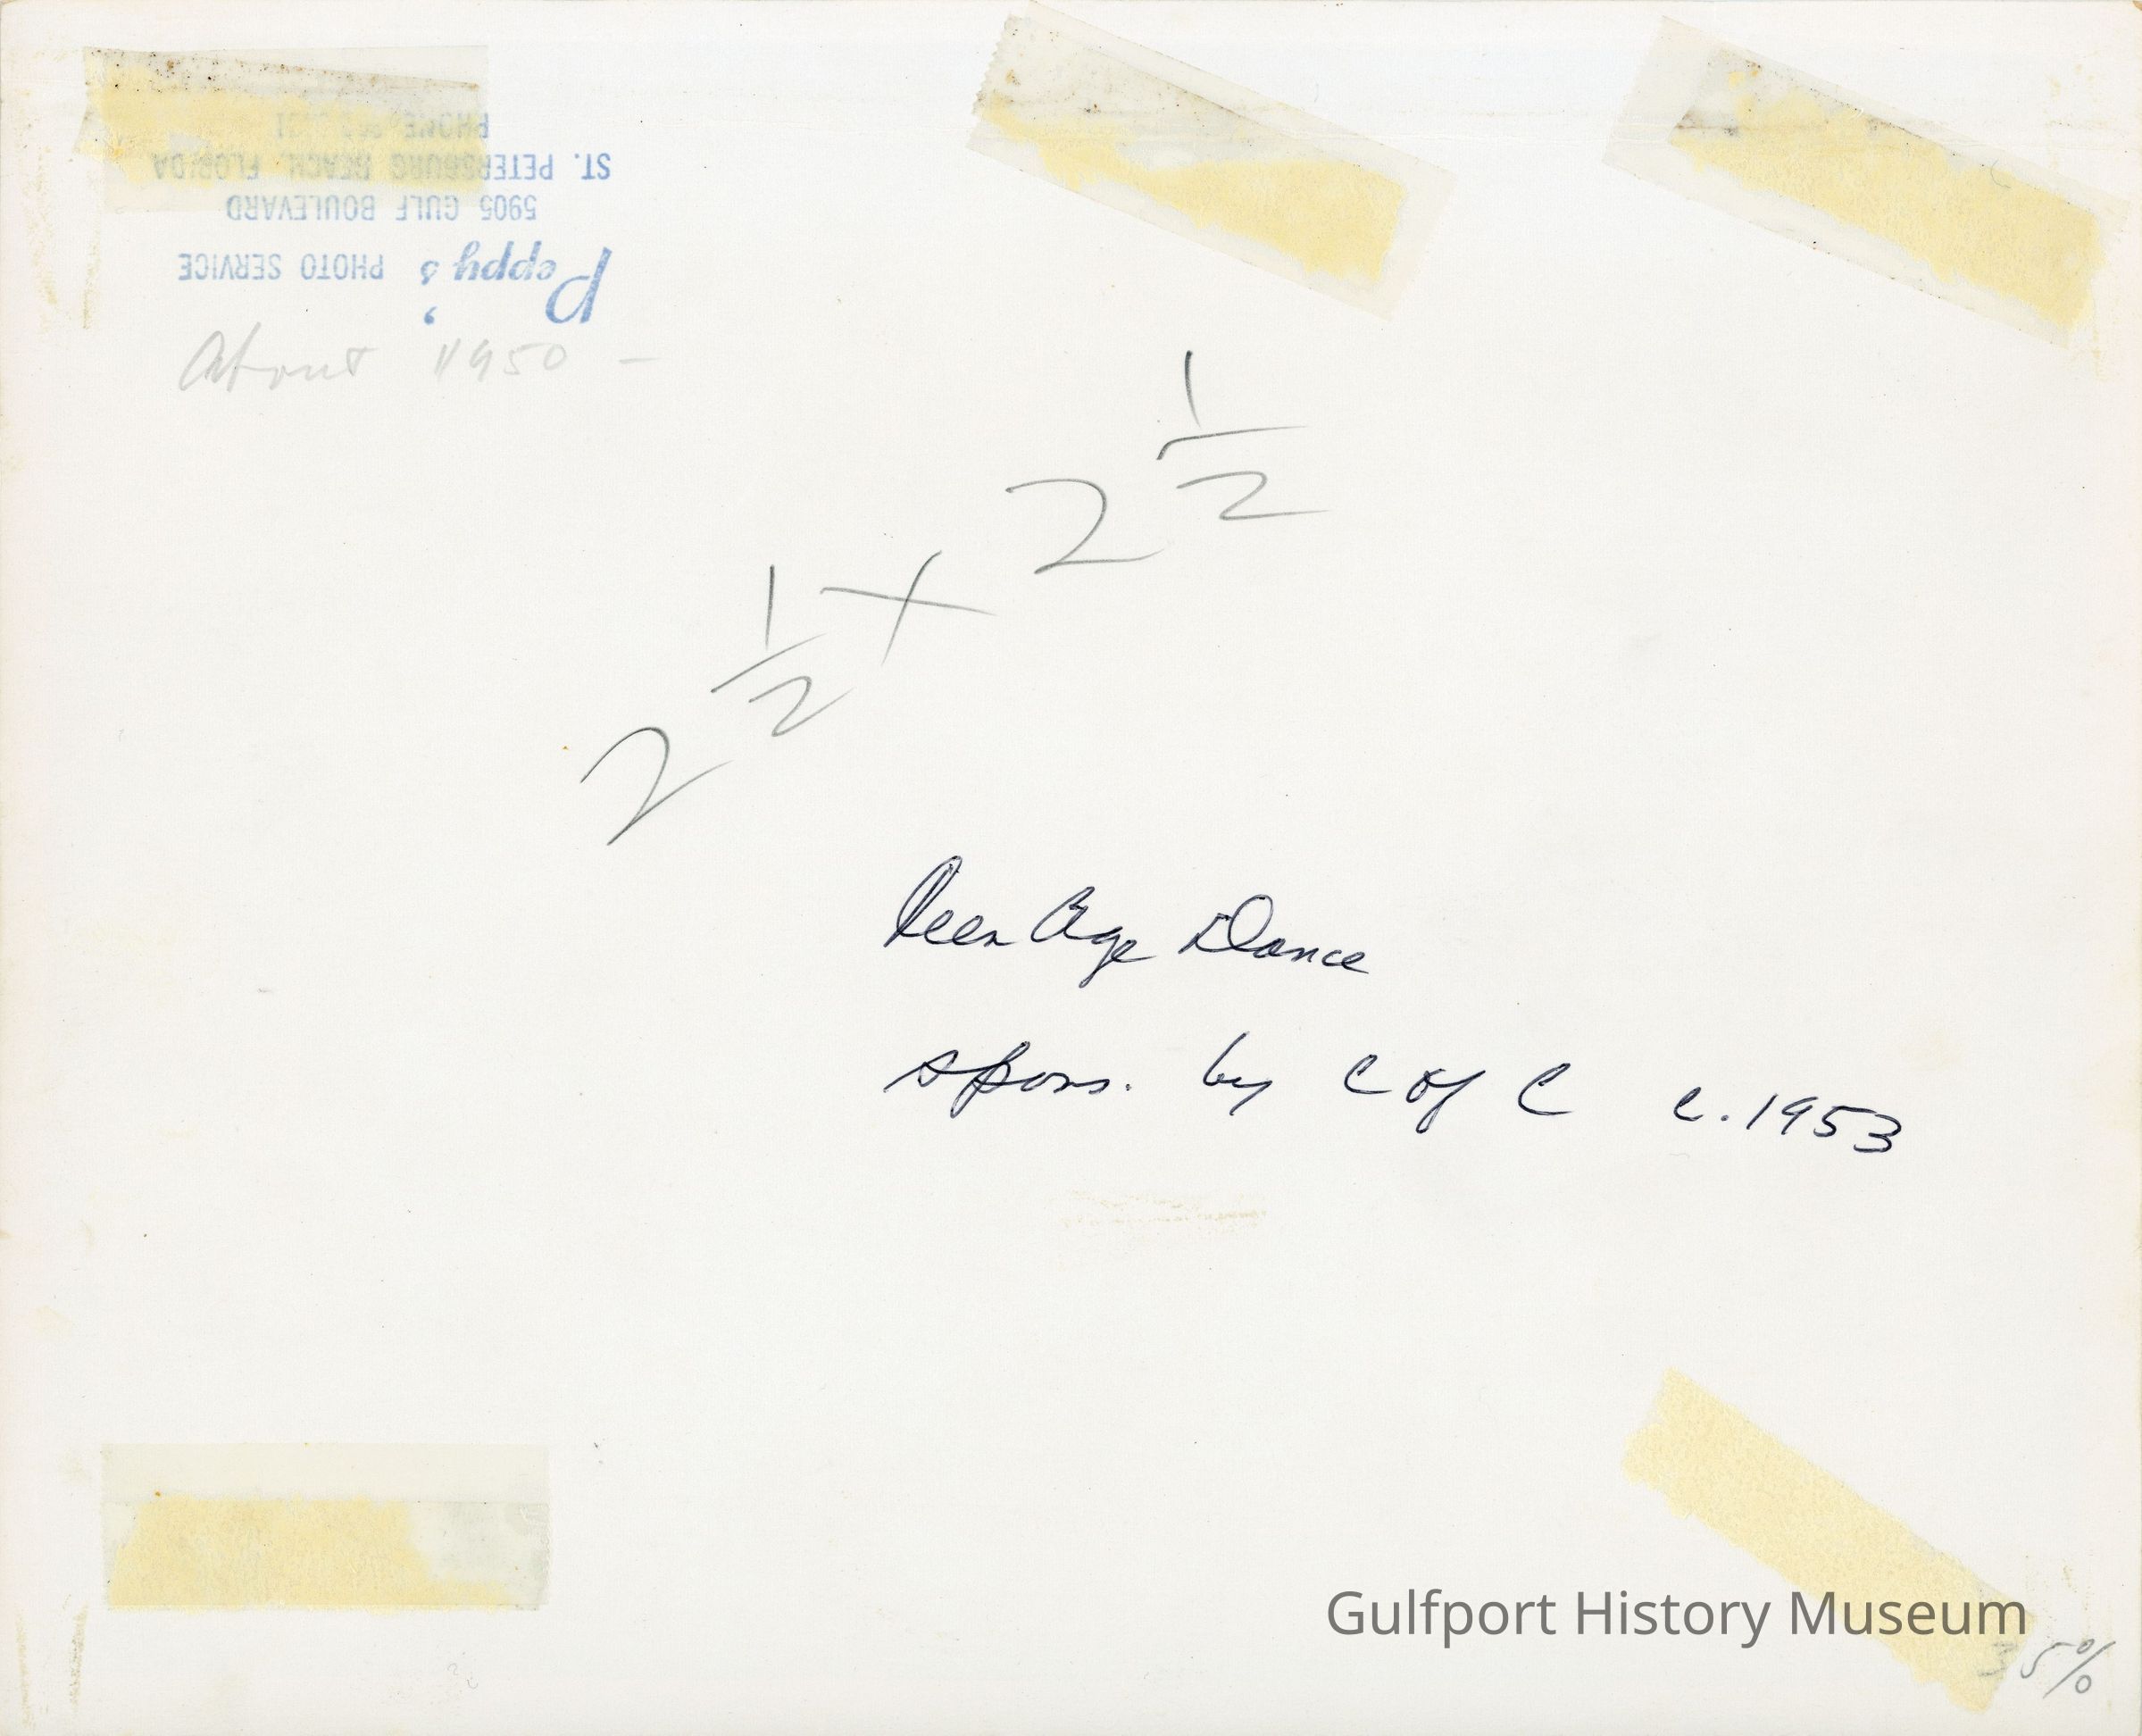 Peppy's PHOTO SERVICE
5905 GULF BOULEVARD
ST. PETERSBURG BEACH, FLORIDA
PHONE
About 1950 -
2 1/2 x 2 1/2
Teen Age Dance
spons. by C of C c. 1953
Gulfport History Museum
35%